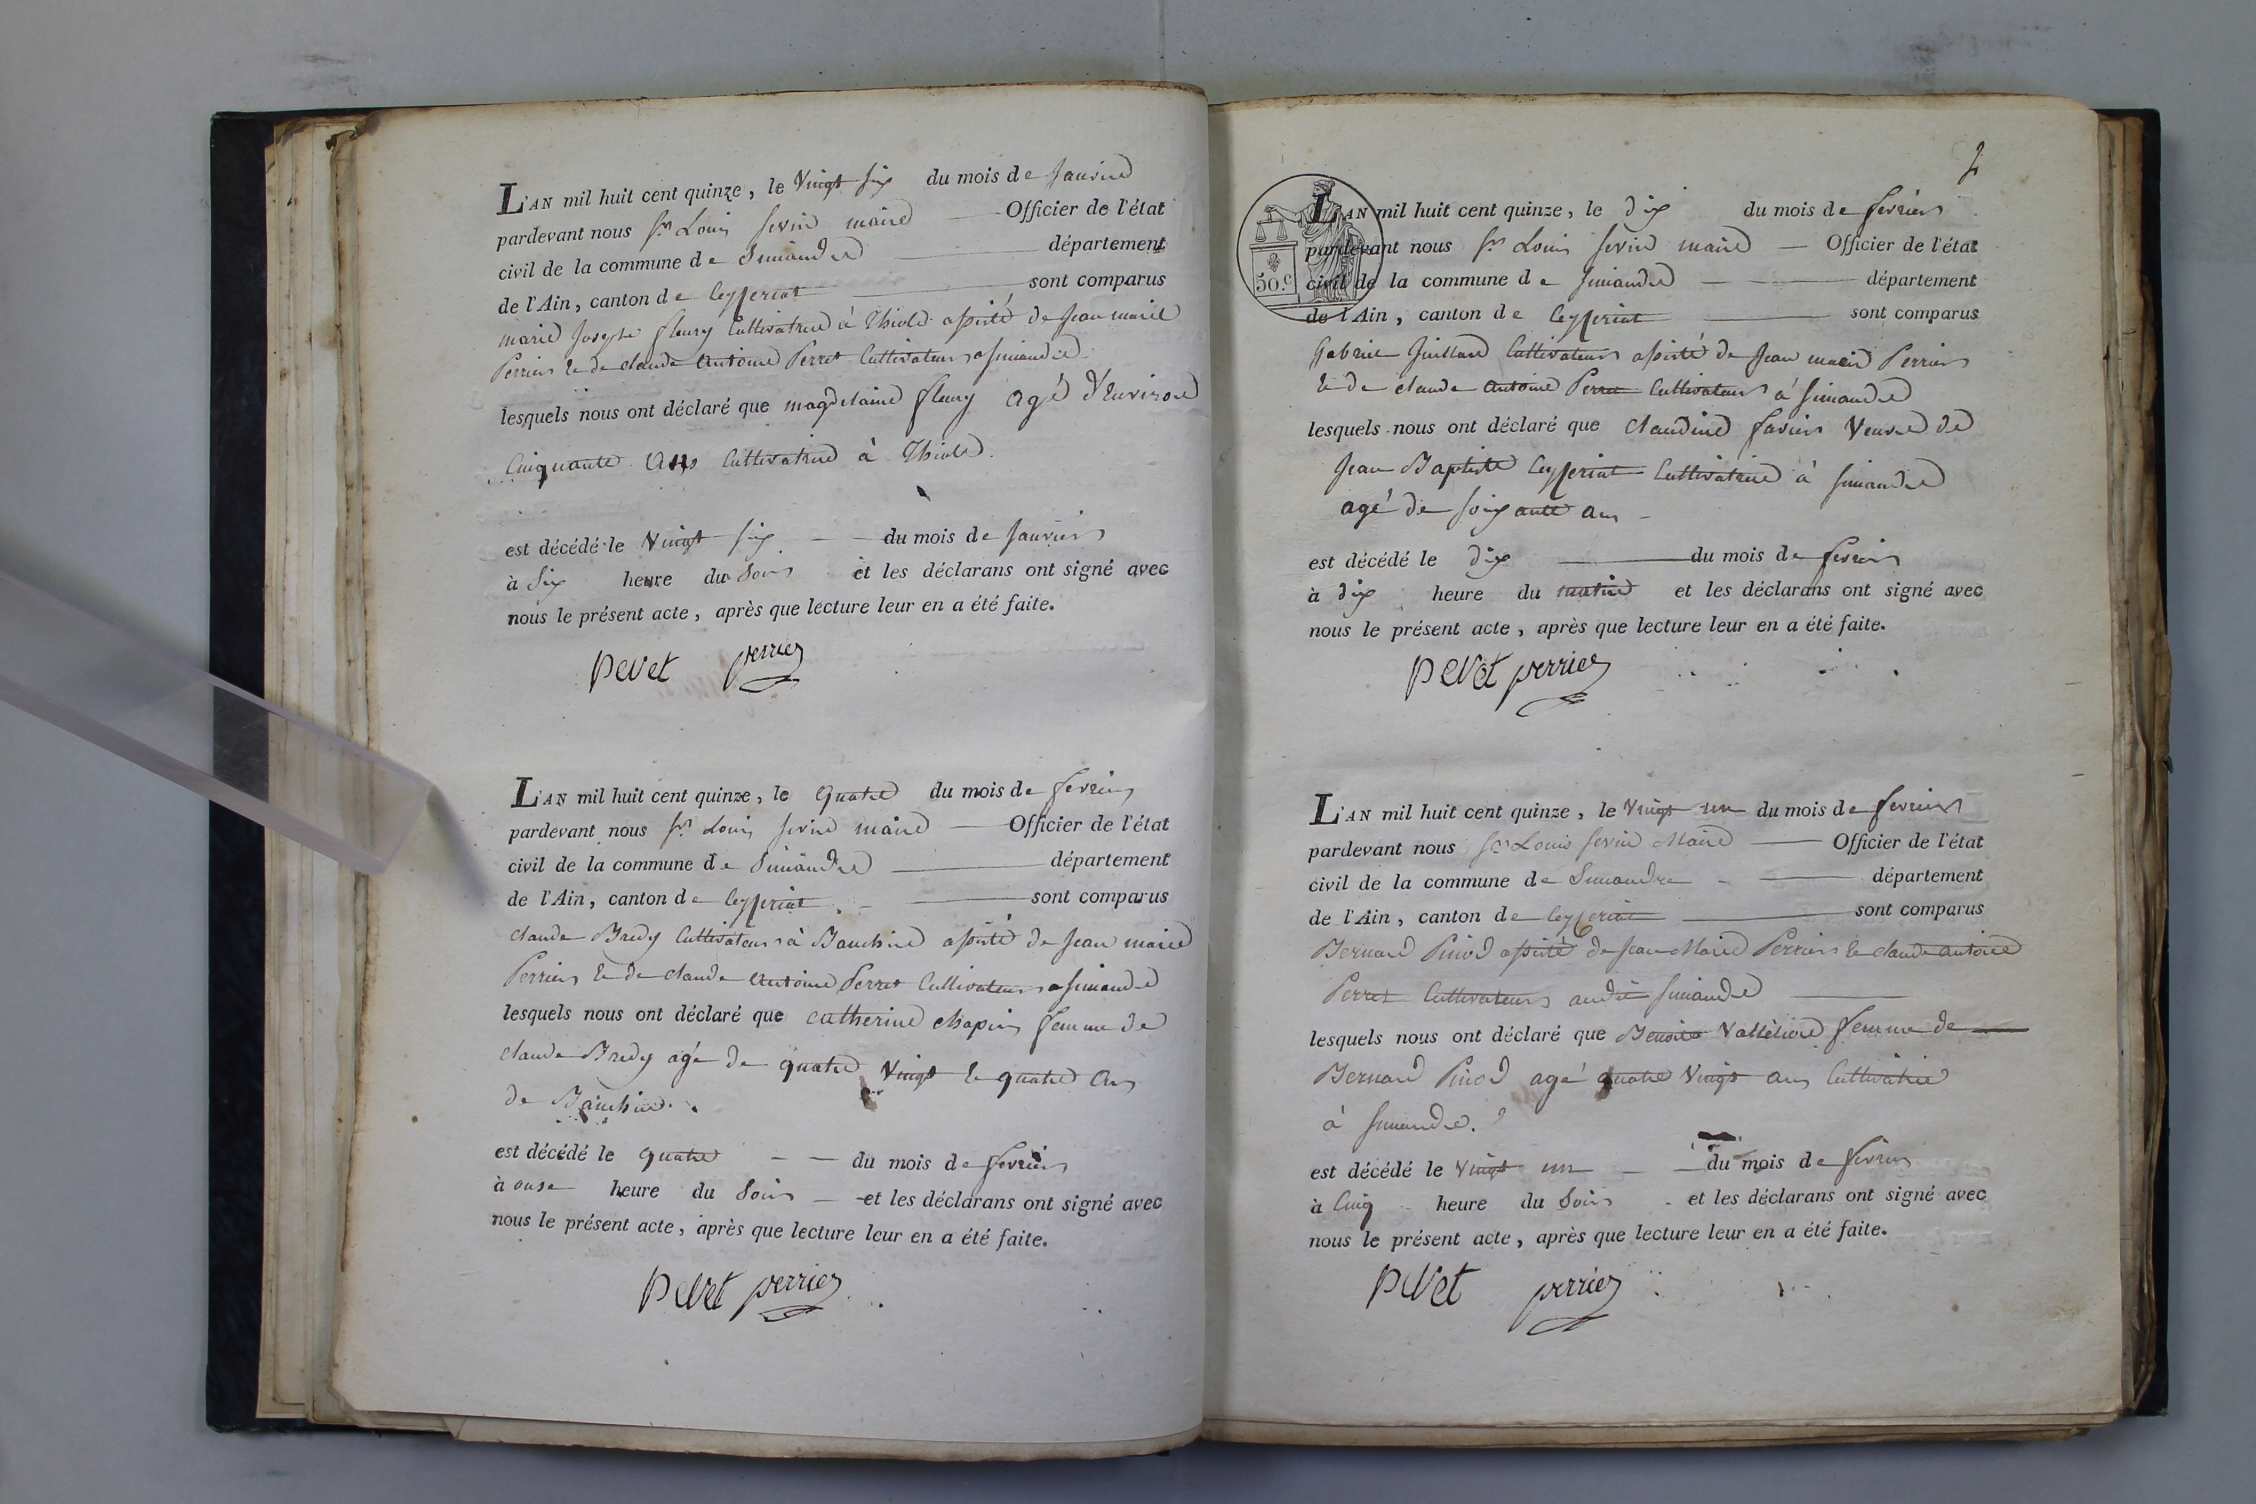 L'AN mil huit cent quinze, le Vingt six du mois de Janvier
pardevant nous Sr Louis maire Officier de l'état
civil de la commune de Simandre département
de l'Ain, canton de Ceyzeriat sont comparus
marie Josephe fleury Cultivatrice à Thiole assisté de Jean marie
Perrier & de claude antoine Perret Cultivateurs a Simandre
lesquels nous ont déclaré que magdelaine fleury agé d'Environ
Cinquante ans Cultivatrice à Thiole.
est décédé le Vingt six du mois de Janvier
à Six heure du Soir et les déclarans ont signé avec
nous le présent acte, après que lecture leur en a été faite.
perret perrier
L'AN mil huit cent quinze, le quatre du mois de fevrier
pardevant nous Sr Louis maire Officier de l'état
civil de la commune de Simandre département
de l'Ain, canton de Ceyzeriat sont comparus
claude Bredy Cultivateur à assisté de Jean marie
Perrier & de claude antoine Perret Cultivateurs a Simandre
lesquels nous ont déclaré que catherine chapuis femme de
claude Bredy agée de quatre Vingt & quatre ans
de
est décédé le quatre du mois de fevrier
à onse heure du Soir et les déclarans ont signé avec
nous le présent acte, après que lecture leur en a été faite.
perret perrier
2
50.c
L'AN mil huit cent quinze, le dix du mois de fevrier
pardevant nous Sr Louis maire Officier de l'état
civil de la commune de Simandre département
de l'Ain, canton de Ceyzeriat sont comparus
Gabriel Juillard Cultivateur assisté de Jean marie Perrier
& de claude antoine Perret Cultivateurs à Simandre
lesquels nous ont déclaré que claudine favier Veuve de
Jean Baptiste Ceyzeriat Cultivatrice à Simandre
agé de soixante ans
est décédé le dix du mois de fevrier
à dix heure du matin et les déclarans ont signé avec
nous le présent acte, après que lecture leur en a été faite.
perret perrier
L'AN mil huit cent quinze, le Vingt un du mois de fevrier
pardevant nous Sr Louis Maire Officier de l'état
civil de la commune de Simandre département
de l'Ain, canton de Ceyzeriat sont comparus
Bernard Pinod assisté de Jean Marie Perrier & claude antoine
Perret Cultivateurs audit Simandre
lesquels nous ont déclaré que Benoite femme de
Bernard Pinod agé quatre Vingt ans Cultivatrice
à Simandre.
est décédé le Vingt un du mois de fevrier
à Cinq heure du Soir et les déclarans ont signé avec
nous le présent acte, après que lecture leur en a été faite.
perret perrier